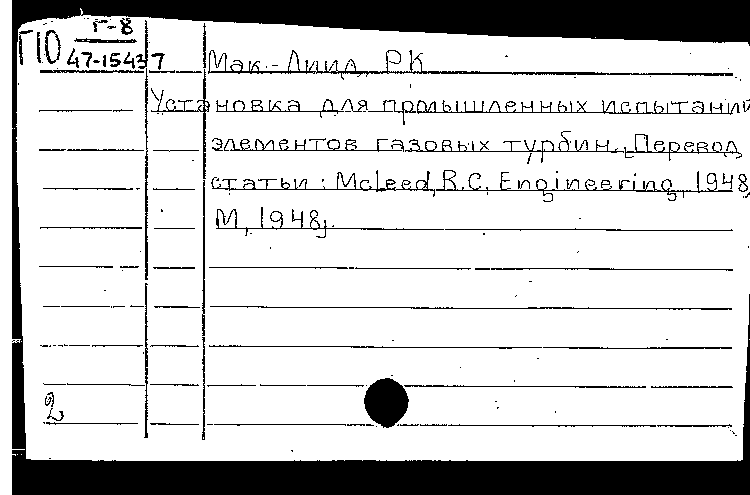 Г10 Г-8
47-15437 Мак-Лиид, РК
Установка для промышленных испытаний
элементов газовых турбин. Перевод
статьи: McLeed, R.C. Engineering, 1948,
М, 1948,
2